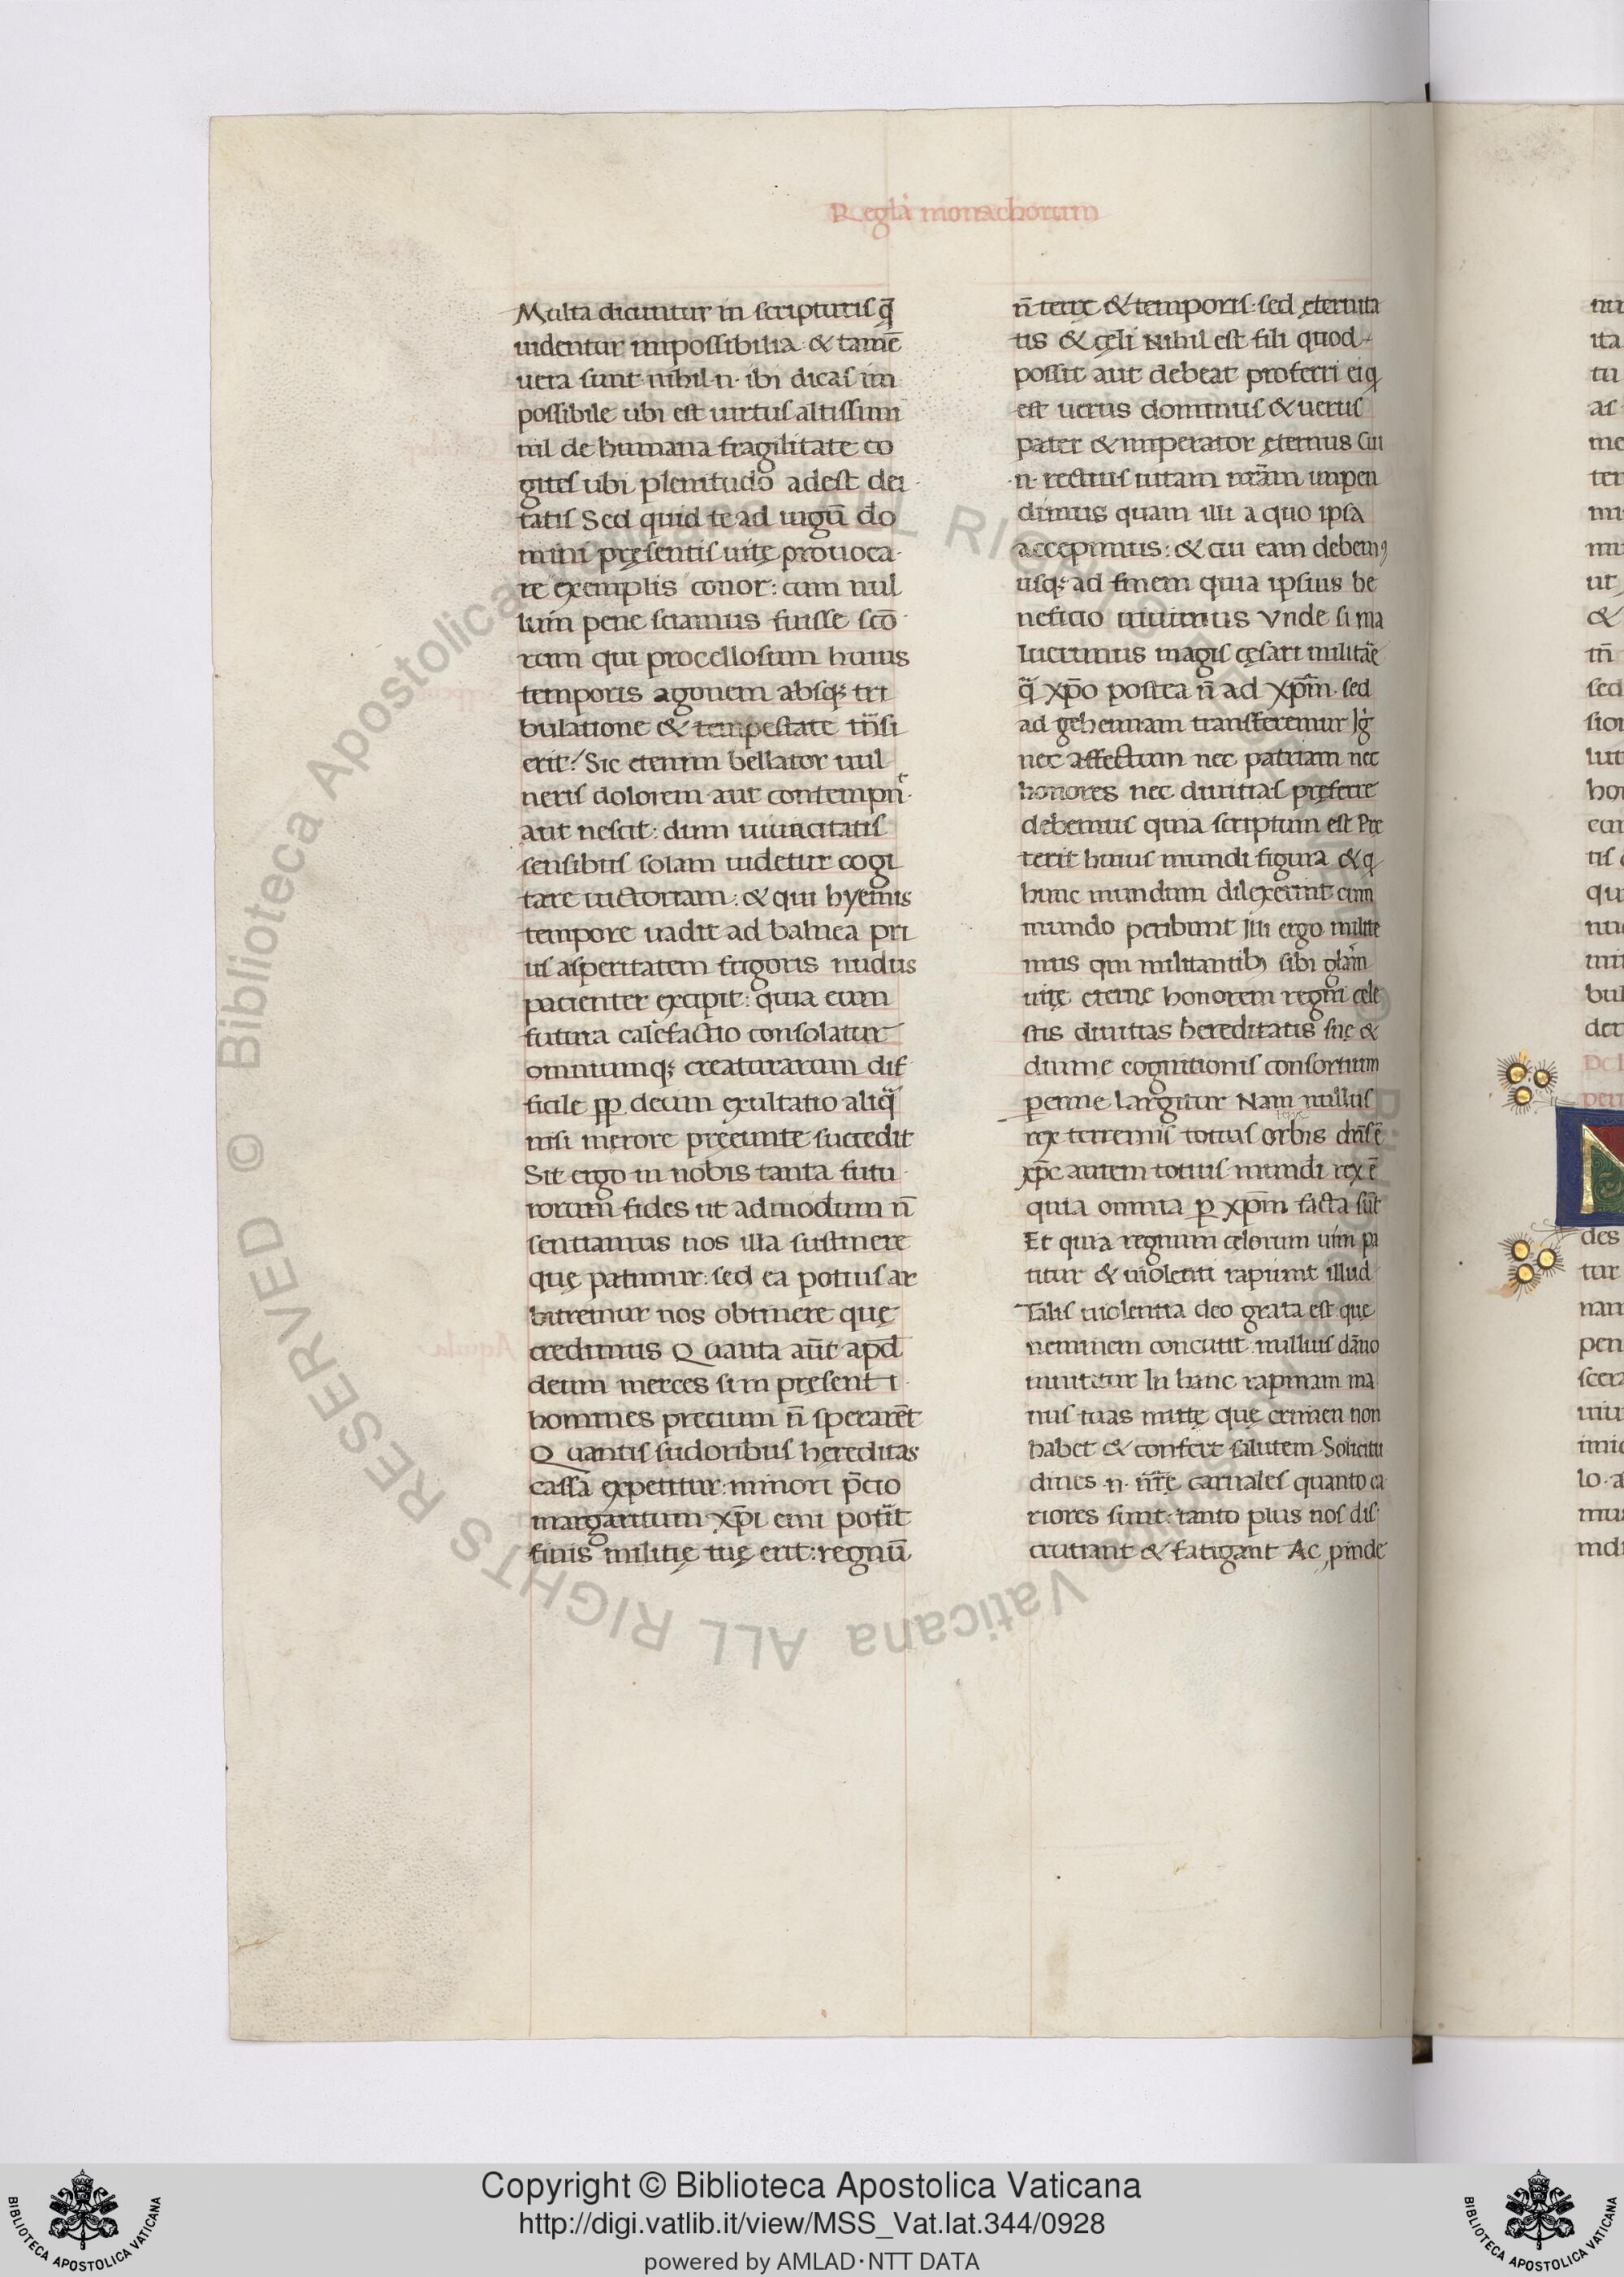 Regla monachorum
Multa dicuntur in scripturis q̄
uidentur impossibilia & tamē
uera sunt·nihil·n· ibi dicas im
possibile ubi est uirtus altissimi
nil de humana fragilitate co
gites ubi plenitudo adest dei
tatis Sed quid te ad uigū do
mini pręsentis uitę prouoca·
re exemplis conor: cum nul
lum pene sciamus fuisse scō
rum qui procellosum huius
temporis agonem absq; tri
bulatione & tempestate trāsi
erit? Sic etenim bellator uul
neris dolorem aut contempn̄·
aut nescit: dum uiuacitatis
sensibus solam uidetur cogi
tare uictoriam: & qui hyemis
tempore uadit ad balnea pri
us asperitatem frigoris nudus
pacienter excipit: quia eum
futura calefactio consolatur
omniumq; creaturarum dif
ficile pp deum exultatio aliq̄
nisi merore preeunte succedit
Sit ergo in nobis tanta futu
rorum fides ut admodum n̄
sentiamus nos illa sustinere
quę patimur: sed ea potius ar
bitremur nos obtinere quę
credimus Quanta aūt apd̄
deum merces sim present i
homines precium n̄ sperarēt
Quantis sudoribus hereditas
cassa expetitur: minori p̄cio
margaritum xp̄i emi potūit
finis militię tuę erit: regnū
n̄ terrę & temporis·sed ęternita
tis & cęli Nihil est fili quod
possit aut debeat proferri ei q
est uerus dominus & uerus
pater & imperator ęternus Cui
·n· rectius uitam nrām impen
dimus quam illi a quo ipsa
accepimus: & cui eam debem9
usq; ad finem quia ipsius be
neficio uiuimus Vnde si ma
luerimus magis cęsari militāe
q̄ xp̄o postea n̄ ad xp̄m· sed
ad gehennam transferemur Ig̊
nec affectum nec patriam nec
honores nec diuitias pręferre
debemus quia scriptum est Pre
terit huius mundi figura & q
hunc mundum dilexerint cum
mundo peribunt Illi ergo milite
mus qui militantib; sibi glām
uitę eternę honorem regni cele
stis diuitias hereditatis suę &
diuinę cognitionis consortium
perenne largitur Nam nullus
rex terrenus totius orbis dn̄s ē
xp̄c autem totius mundi rex ē
quia omnia p xp̄m facta sūt
Et quia regnum celorum uim pa
titur & uiolenti rapiunt illud
Talis uiolentia deo grata est que
neminem concutit· nullius dāno
inuititur In hanc rapinam ma
nus tuas mitte quę crimen non
habet & confert salutem·Solicitu
dines ·n· nr̄ę carnales quanto ca
riores sunt· tanto plus nos dis
cruciant & fatigant Ac pinde
Copyright © Biblioteca Apostolica Vaticana
http://digi.vatlib.it/view/MSS_Vat.lat.344/0928
powered by AMLAD·NTT DATA
BIBLIOTECA APOSTOLICA VATICANA
BIBLIOTECA APOSTOLICA VATICANA